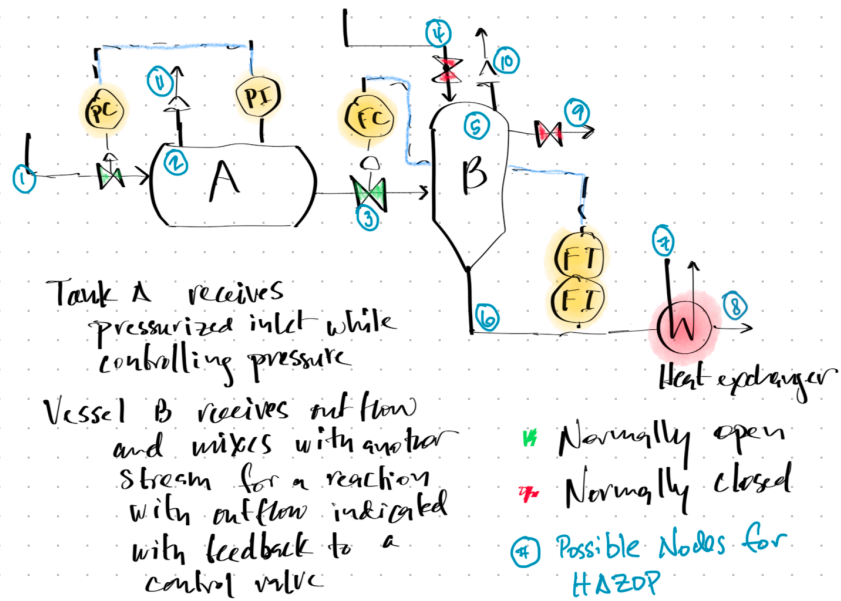 4
10
11
PC
PI
FC
5
9
2
A
B
1
3
7
FT
FI
6
8
Heat exchanger
Tank A receives
pressurized inlet while
controlling pressure
Vessel B receives outflow
and mixes with another
stream for a reaction
with outflow indicated
with feedback to a
control valve
Normally open
Normally closed
# Possible Nodes for
HAZOP